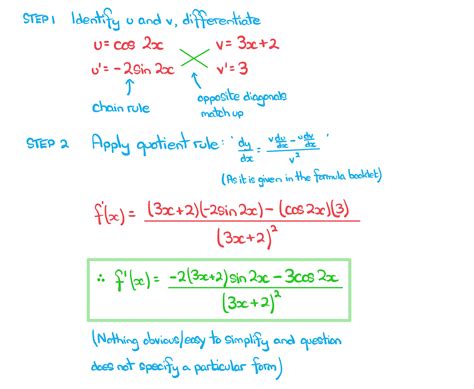 STEP 1 Identify u and v, differentiate
u = cos 2x v = 3x+2
u' = -2sin 2x v' = 3
chain rule
opposite diagonals
match up
STEP 2 Apply quotient rule: ' dy/dx = (v du/dx - u dv/dx)/v² '
(As it is given in the formula booklet)
f'(x) = ((3x+2)(-2sin 2x) - (cos 2x)(3))/(3x+2)²
∴ f'(x) = (-2(3x+2)sin 2x - 3cos 2x)/(3x+2)²
(Nothing obvious/easy to simplify and question
does not specify a particular form)